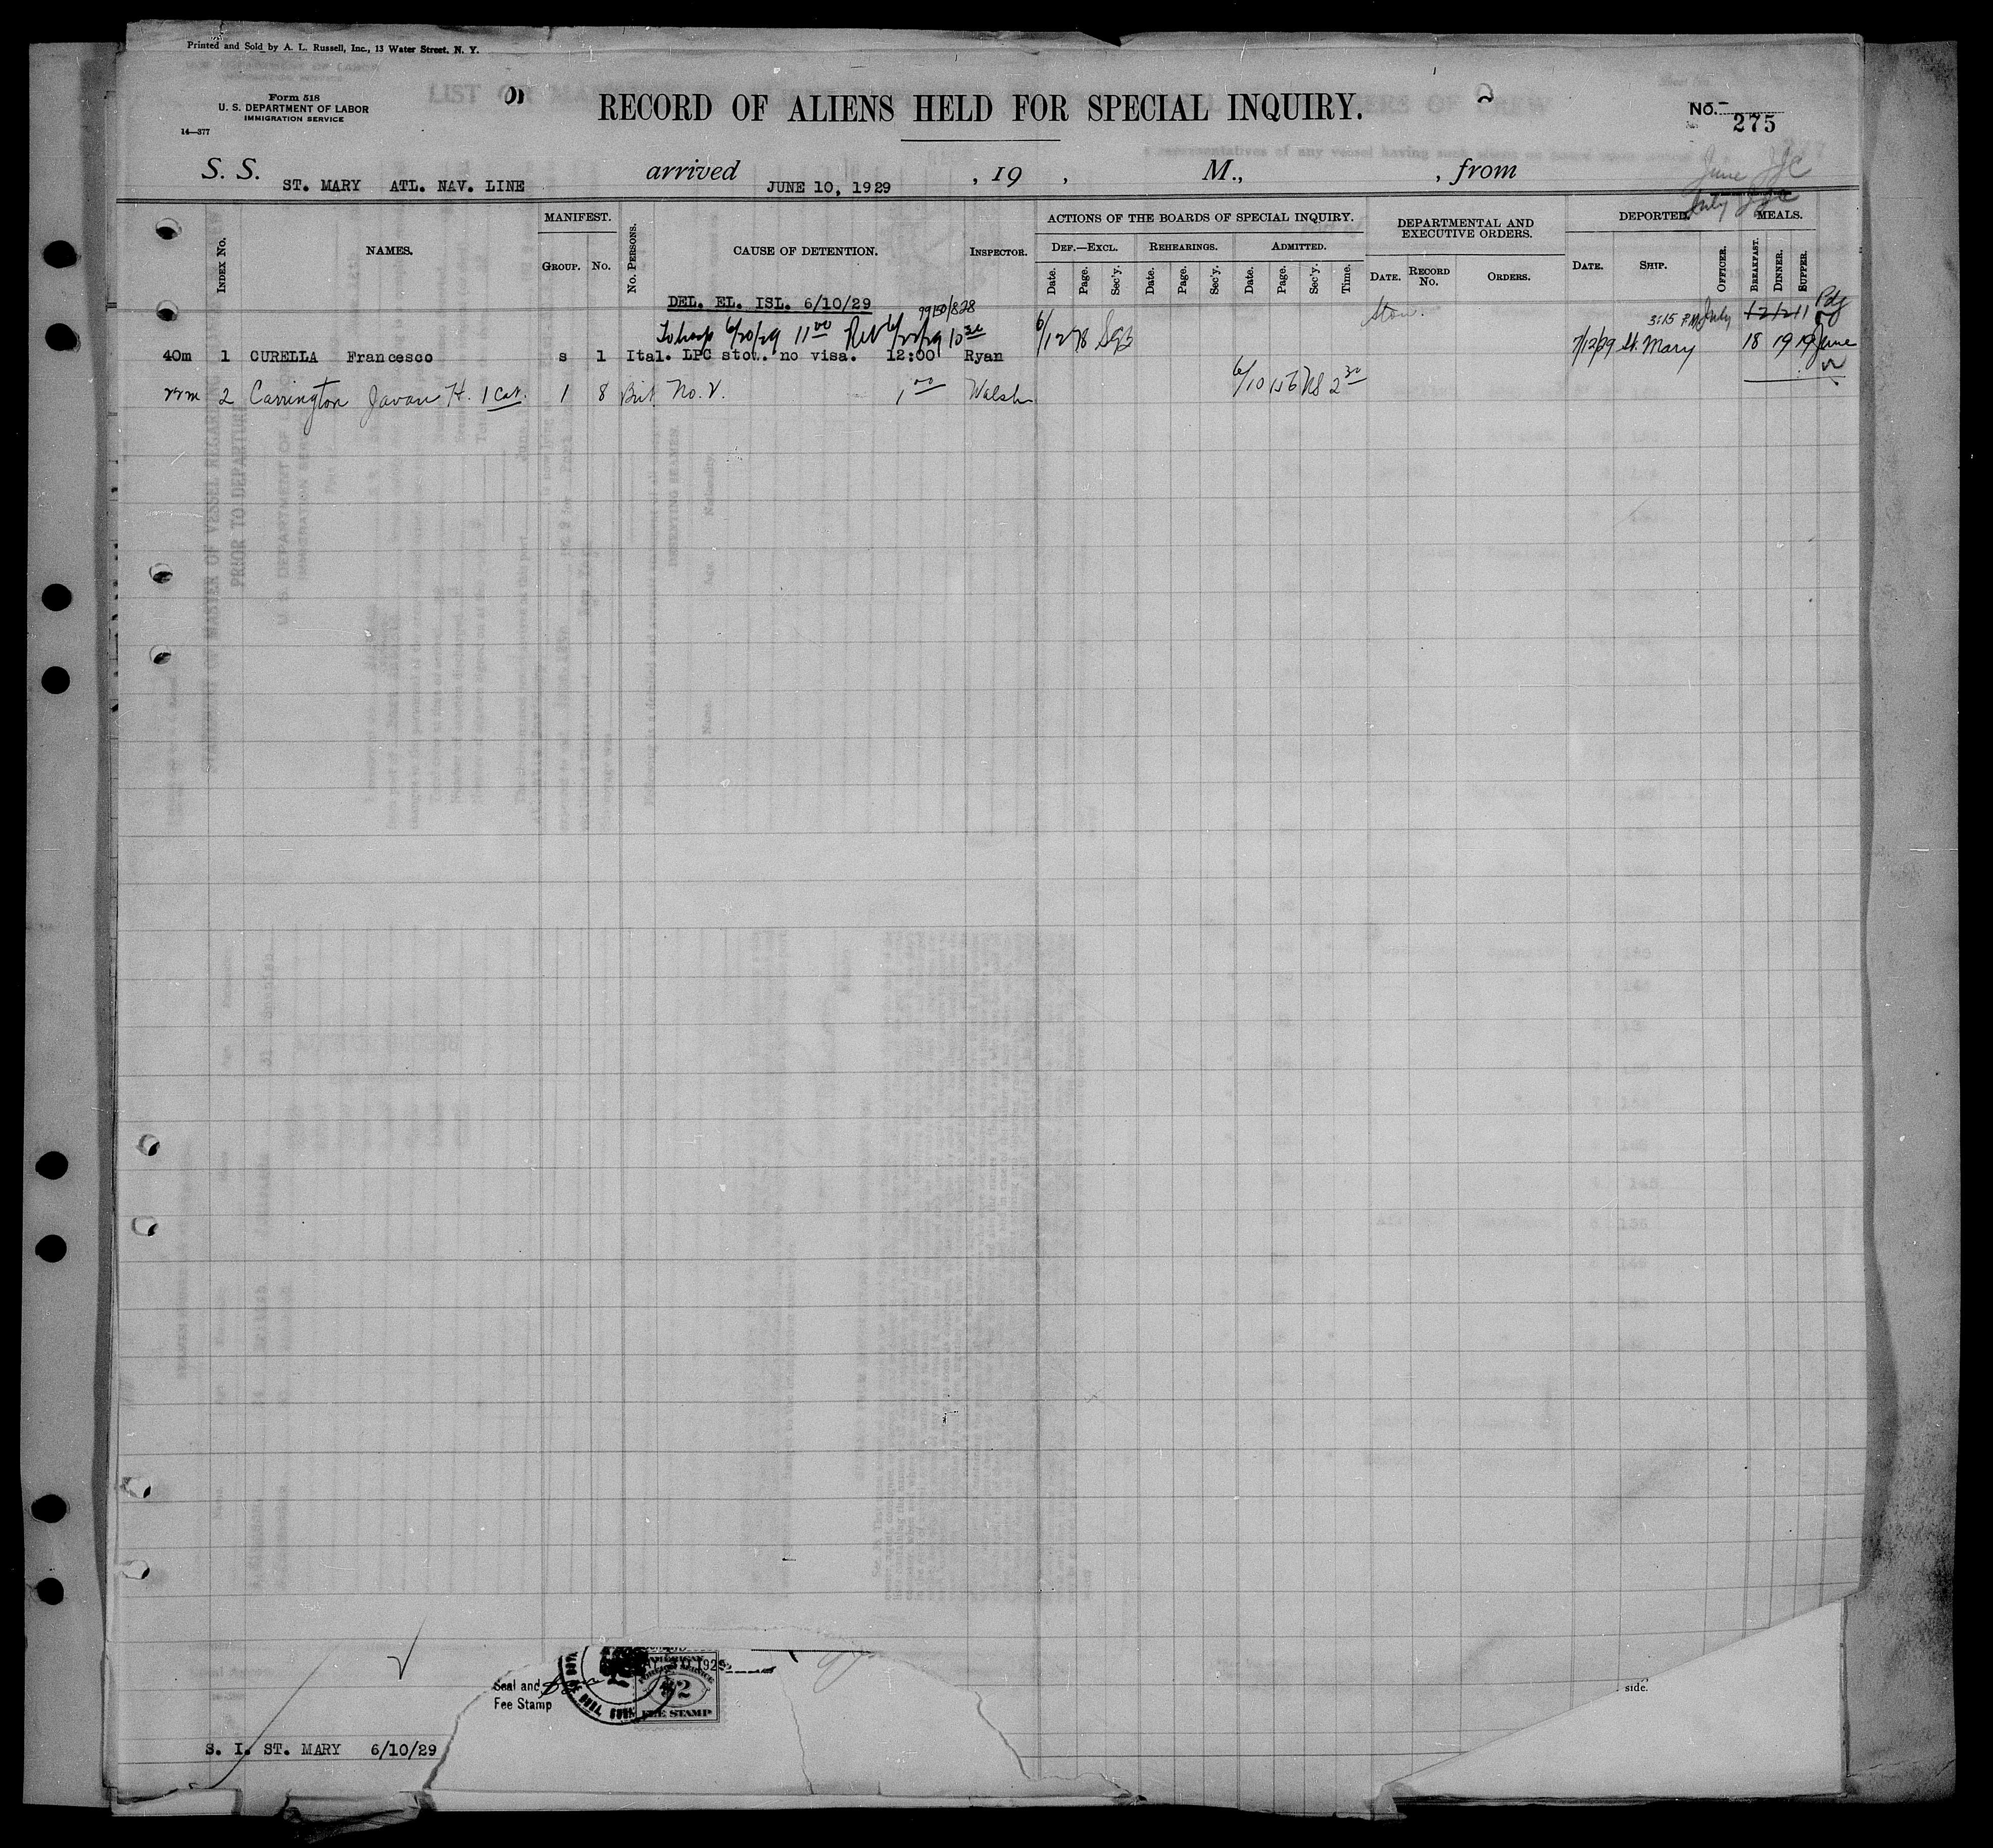 Printed and Sold by A. L. Russell, Inc., 13 Water Street, N. Y.
Form 518
U. S. DEPARTMENT OF LABOR
IMMIGRATION SERVICE
14—377
RECORD OF ALIENS HELD FOR SPECIAL INQUIRY.
No. 275
June JJC
S. S. ST. MARY ATL. NAV. LINE arrived JUNE 10, 1929 , 19 , M., , from
July JJC
INDEX No. NAMES. MANIFEST. GROUP. No. No. PERSONS. CAUSE OF DETENTION. INSPECTOR. ACTIONS OF THE BOARDS OF SPECIAL INQUIRY. DEPARTMENTAL AND EXECUTIVE ORDERS. DEPORTED. MEALS.
DEF.—EXCL. REHEARINGS. ADMITTED.
Date. Page. Sec'y. Date. Page. Sec'y. Date. Page. Sec'y. Time. DATE. RECORD No. ORDERS. DATE. SHIP. OFFICER. BREAKFAST. DINNER. SUPPER.
DEL. EL. ISL. 6/10/29
99150/828
To hosp 6/20/29 11 00 Ret 6/22/29 10 30 6/12 78 stow. 3:15 PM July 12 12 11
40m 1 CURELLA Francesco s 1 Ital. LPC stow. no visa. 12:00 Ryan 7/12/29 St. Mary 18 19 19 June
22m 2 Carrington Javan H. 1 Cat. 1 8 Brit. No. V. 1 00 Walsh 6/10 156 NS 2 30
Seal and
Fee Stamp
AMERICAN
FOREIGN SERVICE
$2
FEE STAMP
side.
S. I. ST. MARY 6/10/29